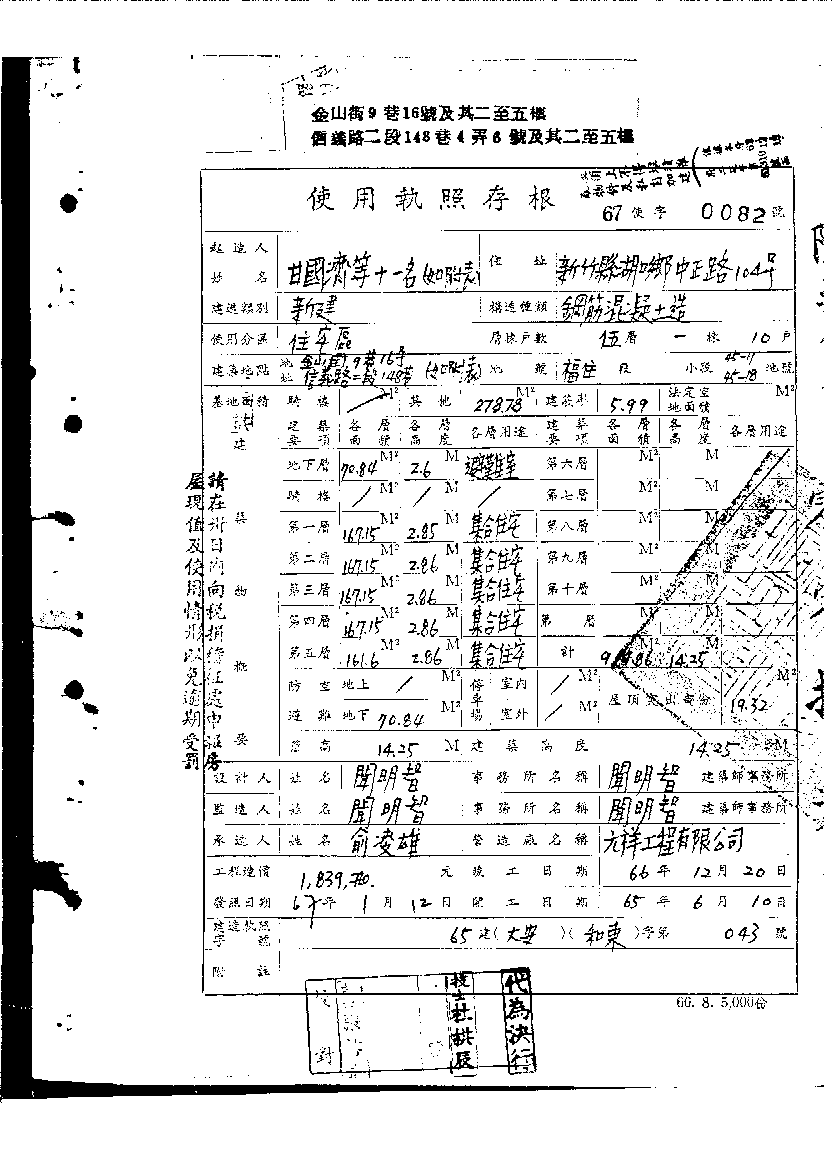 金山街9巷16號及其二至五樓
信義路二段148巷4弄6號及其二至五樓
使用執照存根
67使字 0082號
起造人姓名 甘國濟等十一名(如附表) 住址 新竹縣湖口鄉中正路104號
建造類別 新建 構造種類 鋼筋混凝土造
使用分區 住宅區 層棟戶數 伍層一棟10戶
建築地點 地 金山街9巷16号 地 信義路二段148巷 (如附表) 地號 福住段 小段 45-11 45-18 地號
基地面積 騎樓 / M² 其他 278.78 M² 建蔽率 5.99 法定空地面積 M²
建築要項 各層面積 各層高度 各層用途 建築要項 各層面積 各層高度 各層用途
地下層 70.84 M² 2.6 M 避難室 第六層 M² M
騎樓 / M² / M / 第七層 M² M
第一層 167.15 M² 2.85 M 集合住宅 第八層 M² M
第二層 167.15 M² 2.86 M 集合住宅 第九層 M² M
第三層 167.15 M² 2.86 M 集合住宅 第十層 M² M
第四層 167.15 M² 2.86 M 集合住宅 第 層 M² M
第五層 161.6 M² 2.86 M 集合住宅 計 14.25 M
建築物概要
防空避難 地上 / M² 地下 70.84 停車場 室內 / M² 室外 / M² 屋頂突出部份 19.32 M²
簷高 14.25 M 建築高度 14.25 M
設計人 姓名 聞明智 事務所名稱 聞明智 建築師事務所
監造人 姓名 聞明智 事務所名稱 聞明智 建築師事務所
承造人 姓名 俞凌雄 營造廠名稱 元祥工程有限公司
工程造價 元 竣工日期 66年12月20日
發照日期 67年1月12日 開工日期 65年6月10日
建造執照字號 65建(大安)(和東)字第043號
附註
66. 8. 5,000份
請在卅日內向稅捐稽征處申報房
屋現值及使用情形以免逾期受罰
校對
代為決行